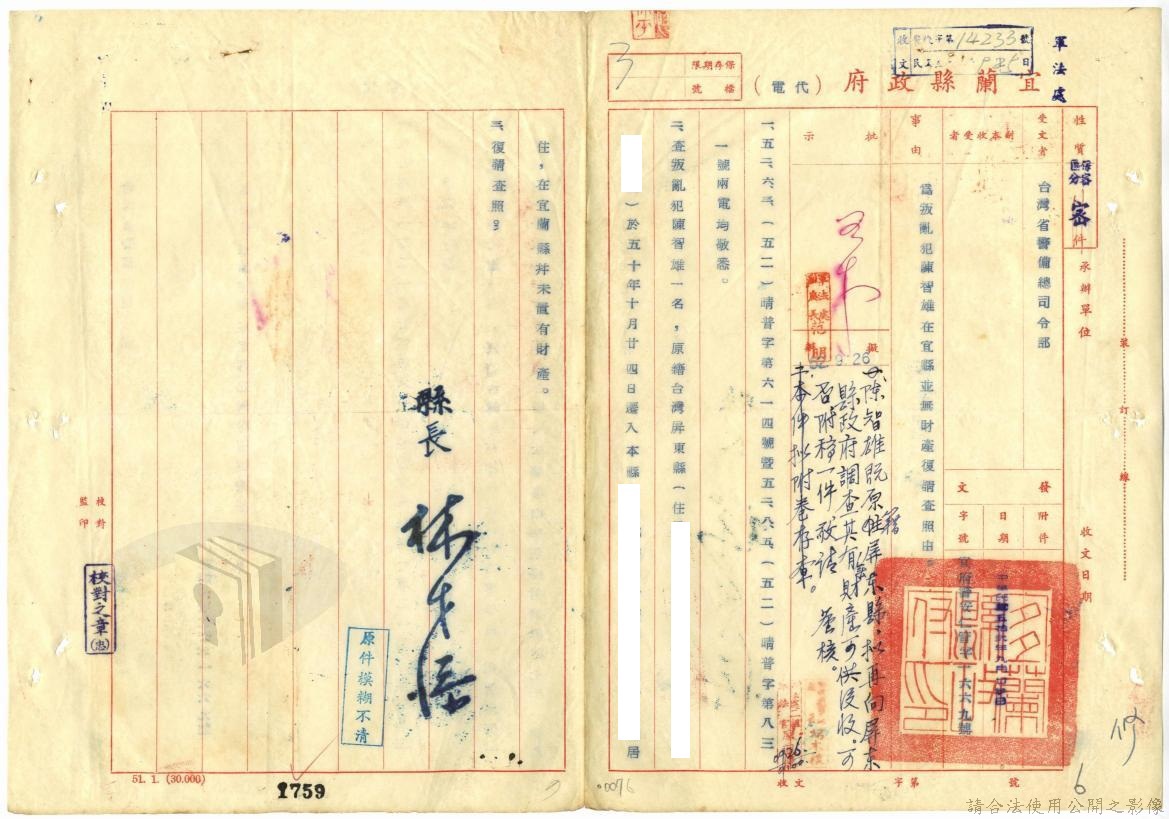 軍法處
收文
字第14233號
宜蘭縣政府（代電）
保存期限
檔號
3
性質
保密區分
密件
受文者
台灣省警備總司令部
副本收受者
承辦單位
裝訂線
收文日期
發文
附件
日期
字號
事由
為叛亂犯陳智雄在宜縣並無財產復請查照由。
批示
擬辦
一、陳智雄既原籍屏東縣，擬再向屏東
縣政府調查其有無財產可供沒收，可
否附稿一件敬請 鑒核。
二、本件擬附卷存查。
一、五二、六、三、（五二）晴普字第六一四號暨五二、八、五、（五二）晴普字第八三
一號兩電均敬悉。
二、查叛亂犯陳智雄一名，原籍台灣屏東縣（住
）於五十年十月廿四日遷入本縣
居
住，在宜蘭縣幷未置有財產。
三、復請查照。
縣長 林才添
原件模糊不清
校對
監印
校對之章(忠)
51. 1. (30.000)
1759
0076
收文 字第 號
6
請合法使用公開之影像